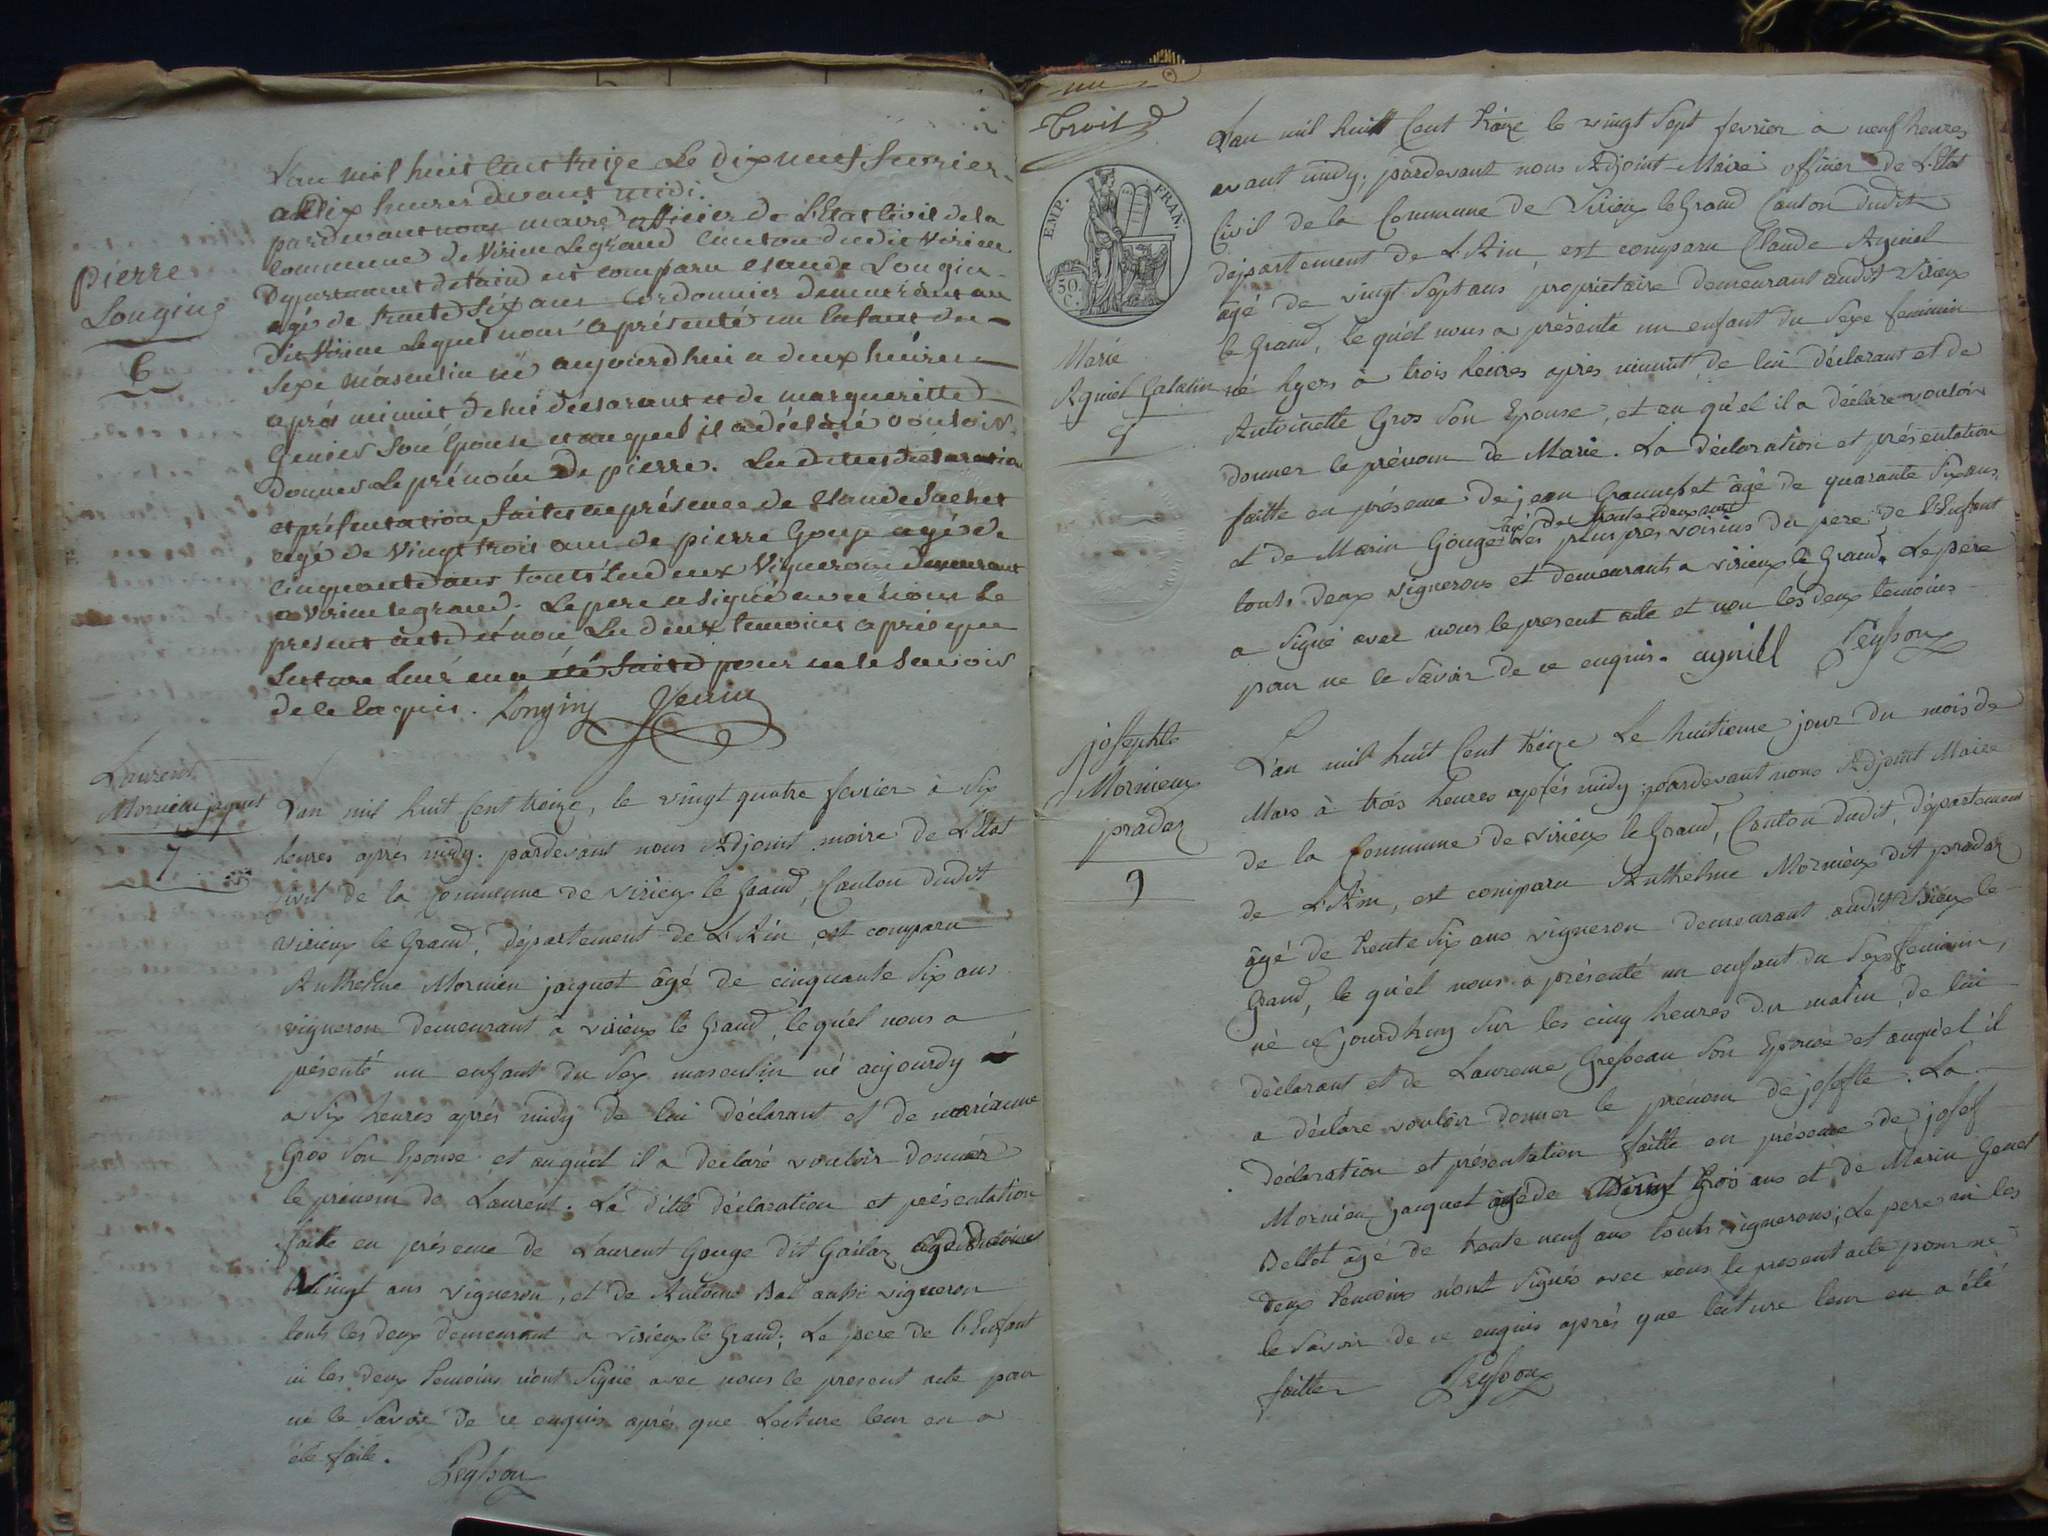 pierre
Longin
6
L'an mil huit cent treize Le dix neuf fevrier
a Dix heures devant midi.
pardevant nous maire officier de L'Etat Civil de la
Commune de Virieu Legrand Canton dudit Virieu
Departement de l'aind est comparu Claude Longin
agé de trente six ans Cordonnier demeurant au
dit Virieu Lequel nous a présenté un Enfant du
Sexe masculin né aujourd'hui a deux heures
aprés minuit de lui déclarant et de margueritte
Genies son Epouse et au quel il a déclaré vouloir
donner Le prénom De pierre. Les dites déclaration
et présentation faites en présence de Claude
agé de Vingt trois ans de pierre Gouge agé de
cinquante ans touts Les deux Vignerons demeurant
a Virieu legrand. Le pere a signé avec nous Le
present acte et non Les deux temoins aprés que
Lecture Leur en a été faite pour ne le savoir
de ce Enquis. Longin
Laurent
Mornieu jaquet
7
L'an mil huit Cent treize, le vingt quatre fevrier à six
heures aprés midy. pardevant nous Adjoint maire de L'Etat
Civil de la Commune de virieux le Grand, Canton dudit
virieux le Grand, Département de L'Ain, est comparu
Anthelme Mornieu jacquet âgé de cinquante six ans
vigneron demeurant à virieux le Grand, le quel nous a
présenté un enfant du sex masculin né aujourdy
a six heures aprés midy de lui déclarant et de marianne
Gros son Epouse et auquel il a declaré vouloir donner
le prénom de Laurent. La ditte déclaration et présentation
faitte en présence de Laurent Gouge dit Gailar âgé de
Vingt ans vigneron, et de Antoine Bal aussi vigneron
touts les deux demeurant à virieux le Grand; Le pere de l'Enfant
ni les deux temoins n'ont signé avec nous le present acte pour
ne le savoir de ce enquis aprés que Lecture leur en a
été faite. Peysson
Trois
EMP. FRAN.
50
C.
Marie
Agniel Galatin
L'an mil huitt Cent treize le vingt sept fevrier a neuf heures
avant midy; pardevant nous Adjoint Maire officier de L'Etat
Civil de la Commune de Virieux le Grand Canton dudit
département de L'Ain, est comparu Claude Agniel
âgé de vingt sept ans propriétaire demeurant audit Virieux
le Grand, le quel nous a présenté un enfant du sexe feminin
né hyers à trois heures aprés minuit, de lui déclarant et de
Antoinette Gros son Epouse, et au quel il a déclaré vouloir
donner le prénom de Marie. La déclaration et présentation
faitte en présence de jean âgé de quarante six ans,
âgé de trente deux ans
et de Marin Gouge Les plus près voisins du pere de l'Enfant
touts deux vignerons et demeurants a virieux le Grand. Le pere
a signé avec nous le present acte et non les deux temoins
pour ne le savoir de ce enquis. agniell Peysson
josephte
Mornieux
pradaz
9
L'an mil huit Cent treize Le huitieme jour du mois de
Mars à trois heures aprés midy; pardevant nous Adjoint Maire
de la Commune de virieux le Grand, Canton dudit, département
de L'Ain, est comparu Anthelme Mornieux dit pradaz
âgé de trente six ans vigneron demeurant audit Virieux le
Grand, le quel nous a présenté un enfant du sexe feminin,
né ce jourdhuy sur les cinq heures du matin, de lui
déclarant et de Laurence Gresseau son Epouse et auquel il
a déclaré vouloir donner le prénom de josefte. La
déclaration et présentation faitte en présence de josef
Mornieu jacquet âgé de trois ans et de Marin Genet
Bellot âgé de trente neuf ans touts vignerons; Le pere ni les
deux temoins n'ont signés avec nous le present acte pour ne
le savoir de ce enquis aprés que lecture leur en a été
faitte Peysson